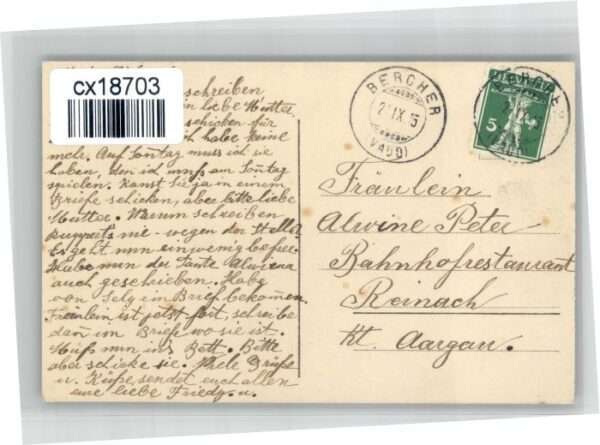 cx18703
schreiben
liebe Mutter
schicken für
ich habe keine
mehr. Auf Sontag muss ich sie
haben, den ich muss am Sontag
spielen. Kanst sie ja in einem
Briefe schicken, aber bitte liebe
Mutter. Warum schreiben
Rupperts nie - wegen der Stelle.
Es geht nun ein wenig besser.
Habe nun der Tante Alwiena
auch geschrieben. Habe
von Selg im Brief bekomen.
Fräulein ist jetzt fort, schreibe
dan im Briefe wo sie ist.
Muss nun ins Bett. Bitte
aber schicke sie. Viele Grüsse
u. Küsse sendet euch allen
eure liebe Friedy.
BERCHER
2. IX. 15
(VAUD)
5
Fräulein
Alwine Peter
Bahnhofrestaurant
Reinach
Kt. Aargau.